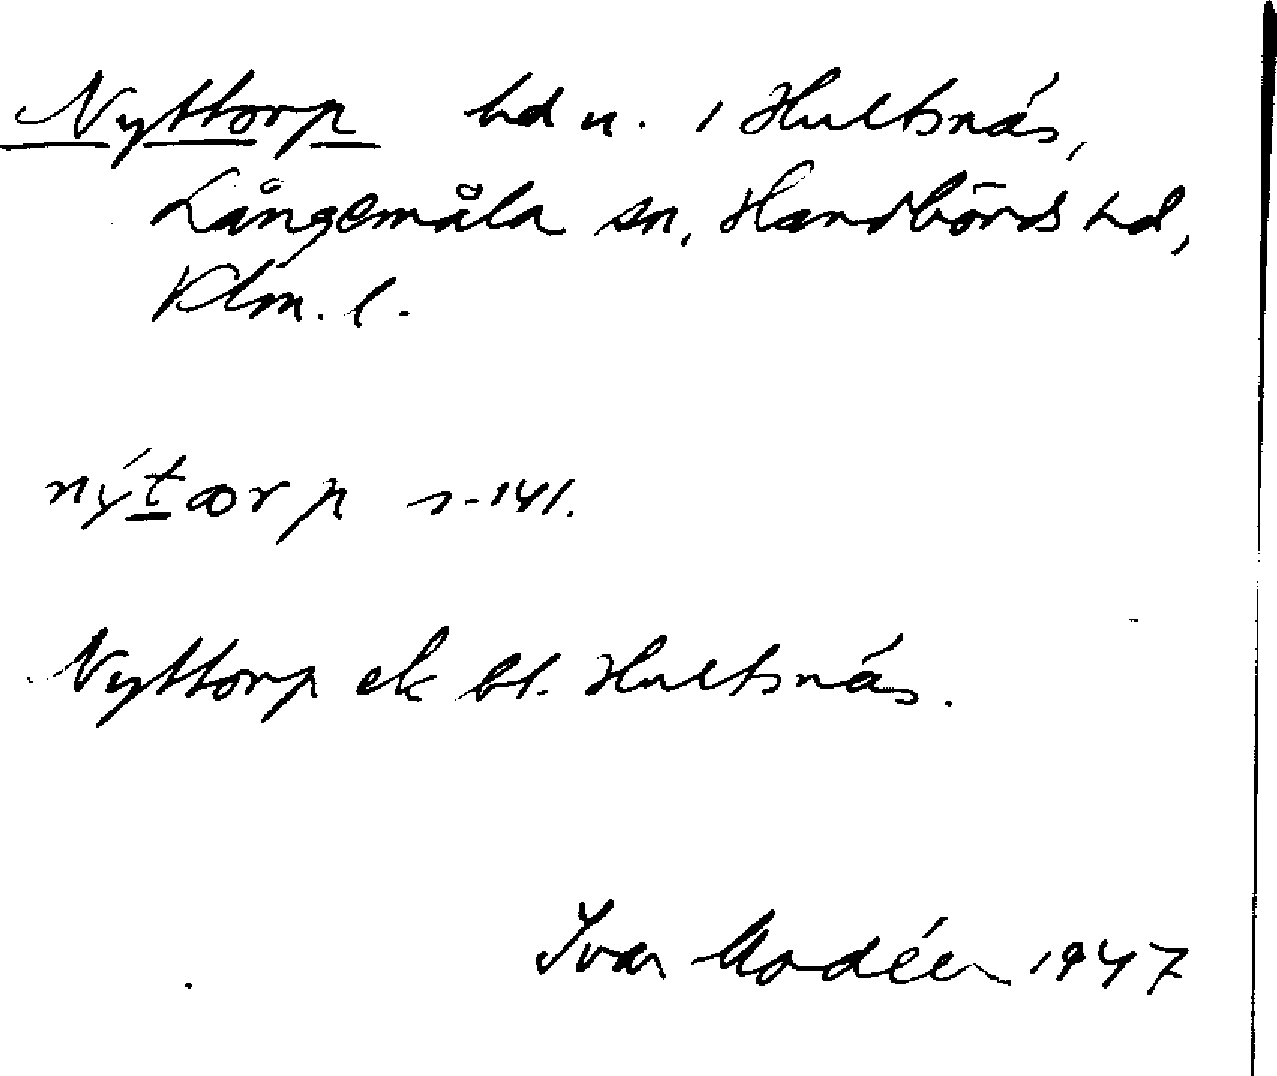 Nyttorp hd u. i Hultsnäs,
Långemåla sn, Handbörds hd,
Klm. l.
nýtærp s-141.
Nyttorp ek bl. Hultsnäs.
Ivar Modéer 1947